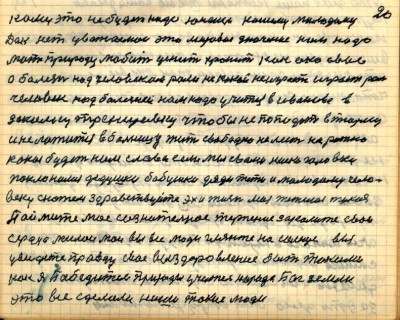 20
кому это не будет надо юноши какому молодому
Вам нет уважаемое это мировое значение нам надо
мать природу любить ценить хранить как око свое
о болезн над человеком роли не какой не играет играет рол
человек над болезней нам надо учится в иванове в
закалку тренировку чтобы не попадать в тюрму
и не ложится в больницу жить свободно не лезт на рожно
какая будет нам слава если мы своей низко головку
поклонимся дедушки бабушки дяди тети и молодому чело-
веку скажем здравствуйте эх и жизн моя тяжолая такая
Поймите мое сознательное терпение закалите свои
сердца милои мои вы все люди гляньте на солнце вы
увидите правду свое выздоровление быть такими
как я Победителем природы учителя народа Бог земли
это все сделали наши такие люди